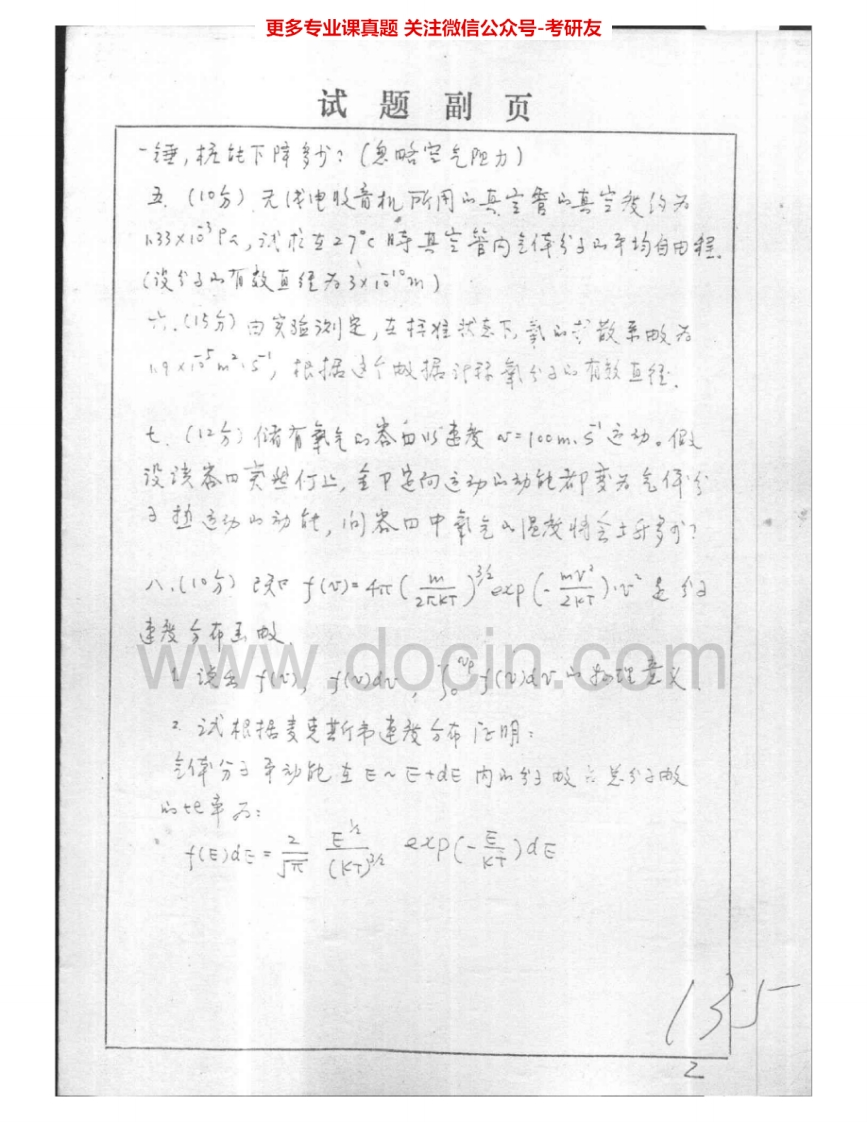 更多专业课真题 关注微信公众号-考研友
试 题 副 页
一锤,桩能下降多少?(忽略空气阻力)
五、(10分)无线电收音机所用的真空管的真空度约为
1.33×10⁻³Pa,试求在27°C时真空管内气体分子的平均自由程.
(设分子的有效直径为3×10⁻¹⁰m)
六、(15分)由实验测定,在标准状态下,氧的扩散系数为
1.9×10⁻⁵m²·s⁻¹,根据这个数据计算氧分子的有效直径.
七、(12分)储有氧气的容器以速度 v=100m·s⁻¹运动。假
设该容器突然停止,全部定向运动的动能都变为气体分
子热运动的动能,问容器中氧气的温度将会上升多少?
八、(10分)已知 f(v)=4π(m/2πKT)^{3/2}exp(-mv²/2KT)·v² 是分子
速度分布函数.
1. 说出 f(v), f(v)dv, ∫₀^{vp} f(v)dv的物理意义.
www.docin.com
2. 试根据麦克斯韦速度分布证明:
气体分子平动能在E~E+dE内的分子数占总分子数
的比率为:
f(E)dE = 2/√π E^{1/2}/(KT)^{3/2} exp(-E/KT)dE
135
2